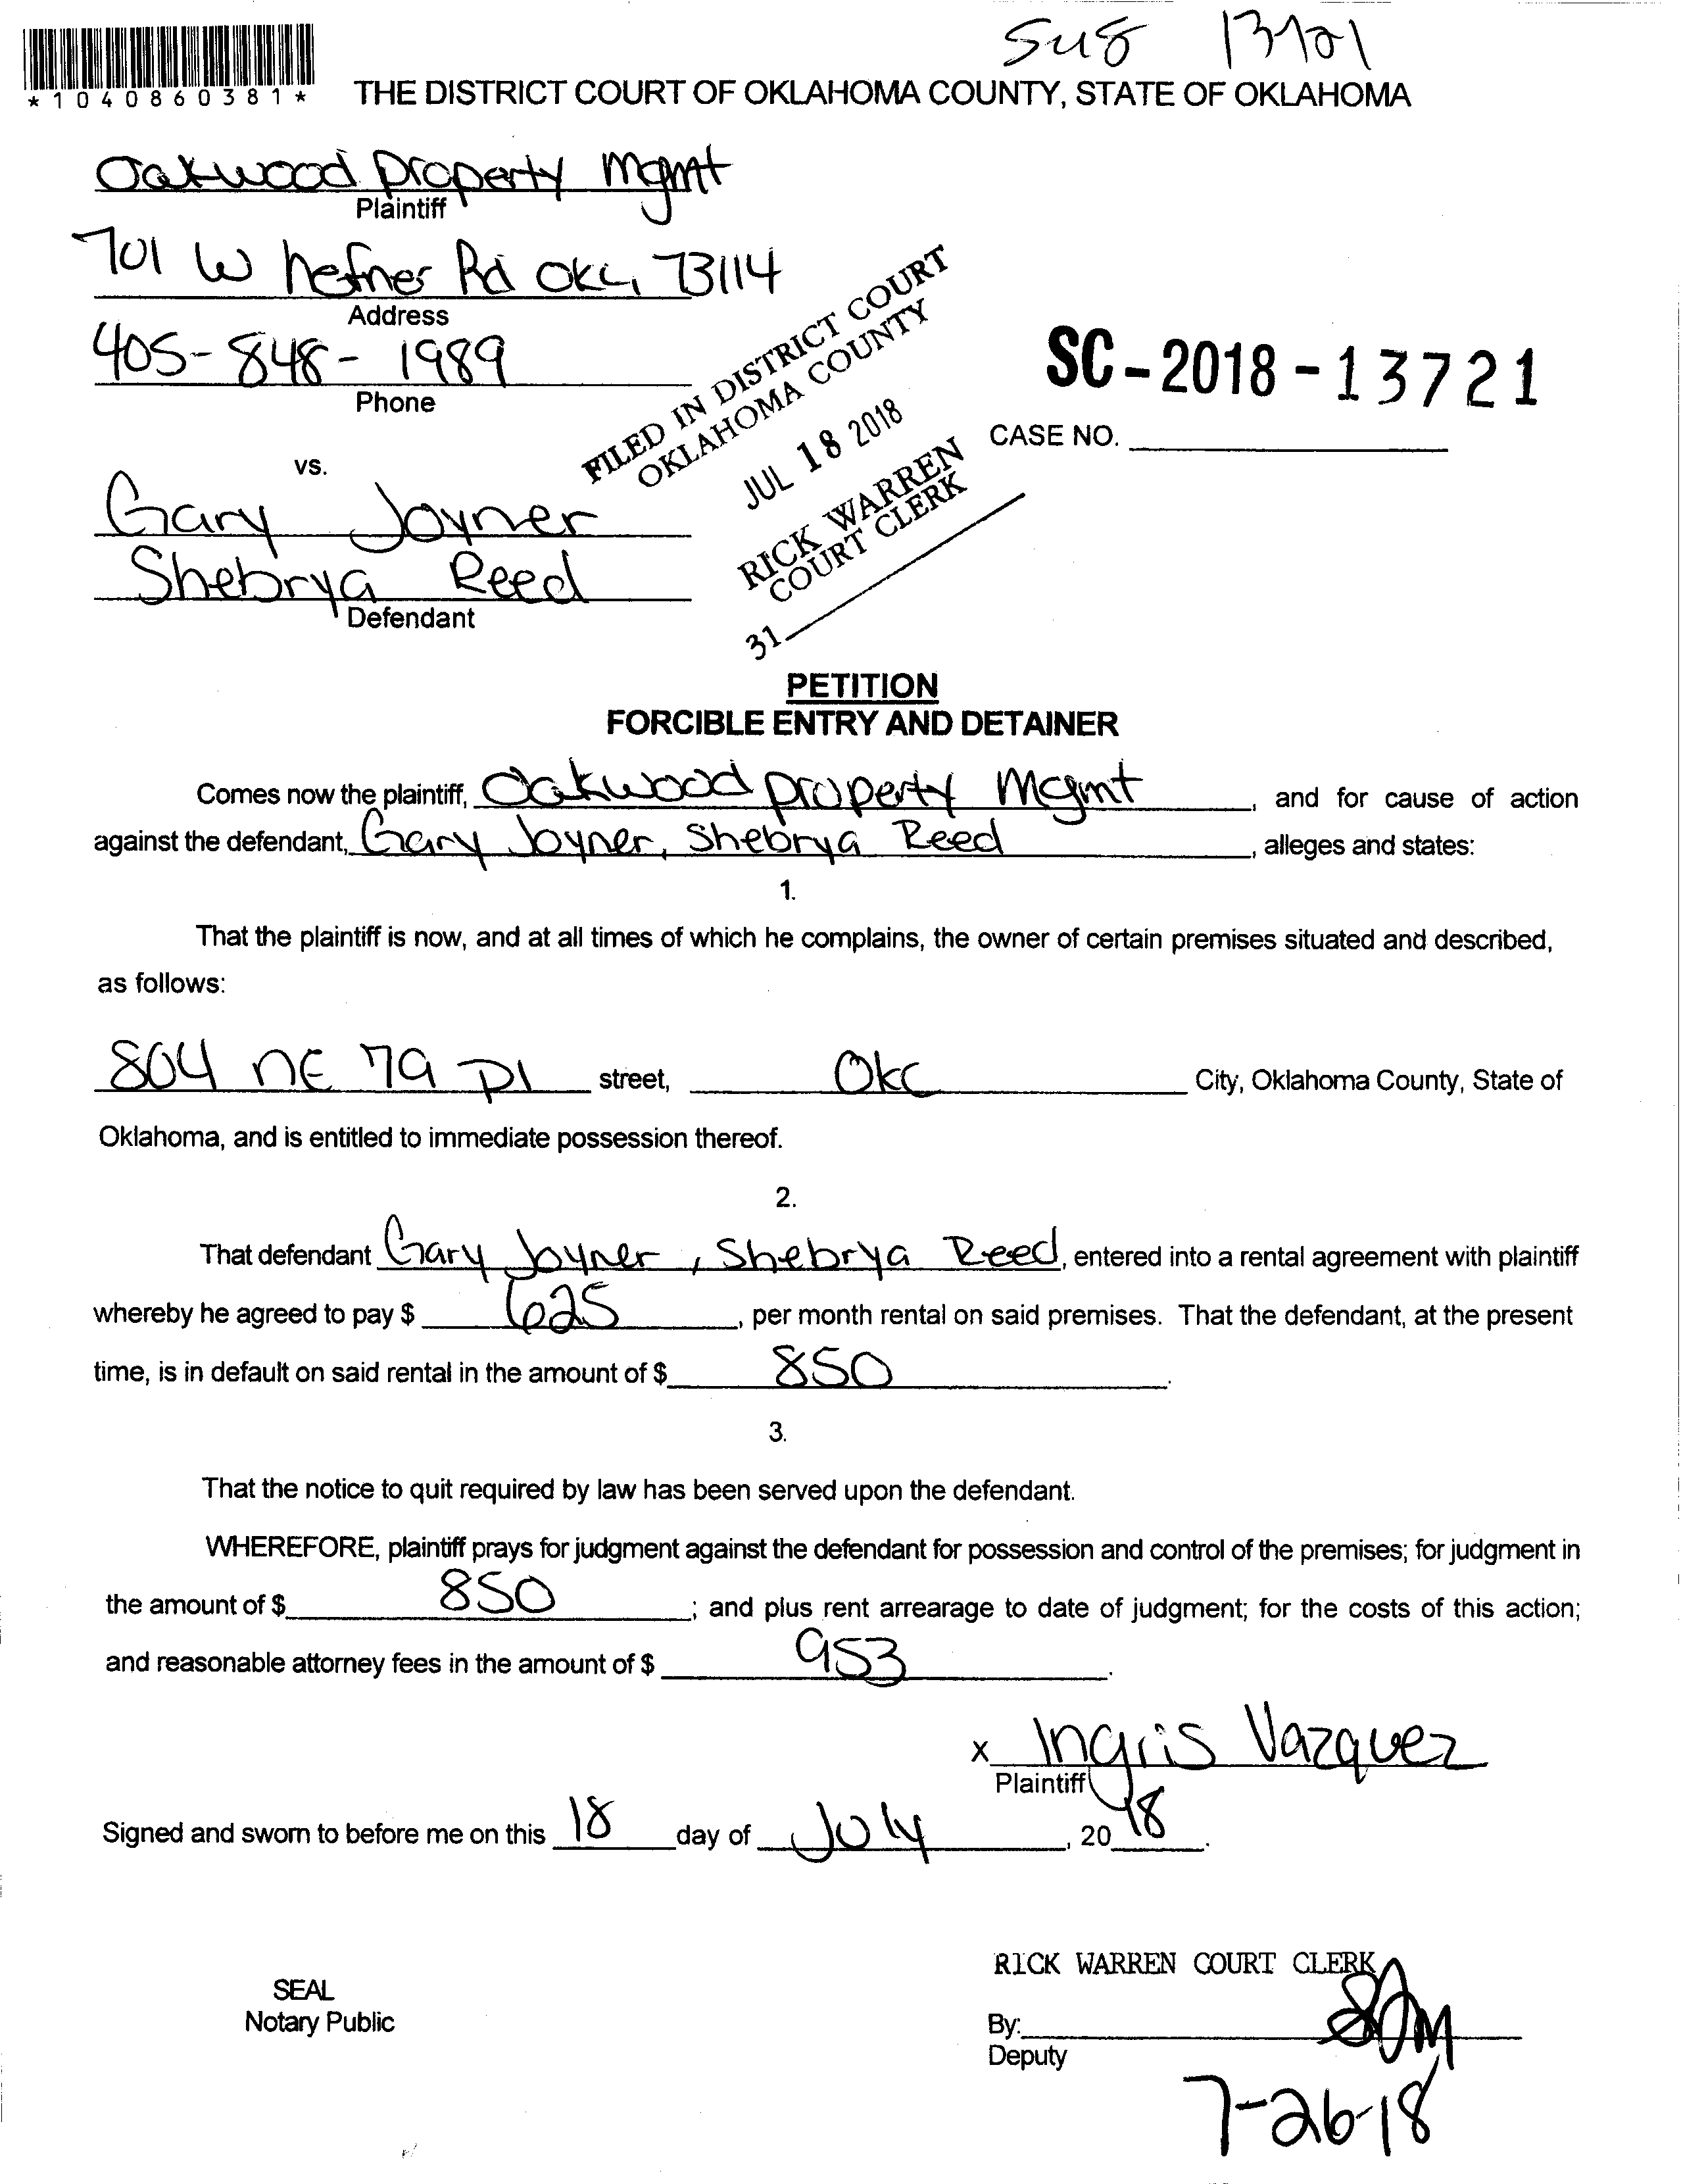 *1040860381*
THE DISTRICT COURT OF OKLAHOMA COUNTY, STATE OF OKLAHOMA
Oakwood property mgmt
Plaintiff
701 W hefner Rd OKC, 73114
Address
405-848-1989
Phone
FILED IN DISTRICT COURT
OKLAHOMA COUNTY
JUL 18 2018
RICK WARREN
COURT CLERK
31
SC-2018-13721
CASE NO.
vs.
Gary Joyner
Shebrya Reed
Defendant
PETITION
FORCIBLE ENTRY AND DETAINER
Comes now the plaintiff, Oakwood property Mgmt, and for cause of action
against the defendant, Gary Joyner, Shebrya Reed, alleges and states:
1.
That the plaintiff is now, and at all times of which he complains, the owner of certain premises situated and described,
as follows:
804 NE 79 Pl street, OKC City, Oklahoma County, State of
Oklahoma, and is entitled to immediate possession thereof.
2.
That defendant Gary Joyner, Shebrya Reed, entered into a rental agreement with plaintiff
whereby he agreed to pay $ 625, per month rental on said premises. That the defendant, at the present
time, is in default on said rental in the amount of $ 850.
3.
That the notice to quit required by law has been served upon the defendant.
WHEREFORE, plaintiff prays for judgment against the defendant for possession and control of the premises; for judgment in
the amount of $ 850; and plus rent arrearage to date of judgment; for the costs of this action;
and reasonable attorney fees in the amount of $ 953.
x Ingris Vazquez
Plaintiff
Signed and sworn to before me on this 18 day of July, 20 18.
RICK WARREN COURT CLERK
SEAL
Notary Public
By:
Deputy
7-26-18